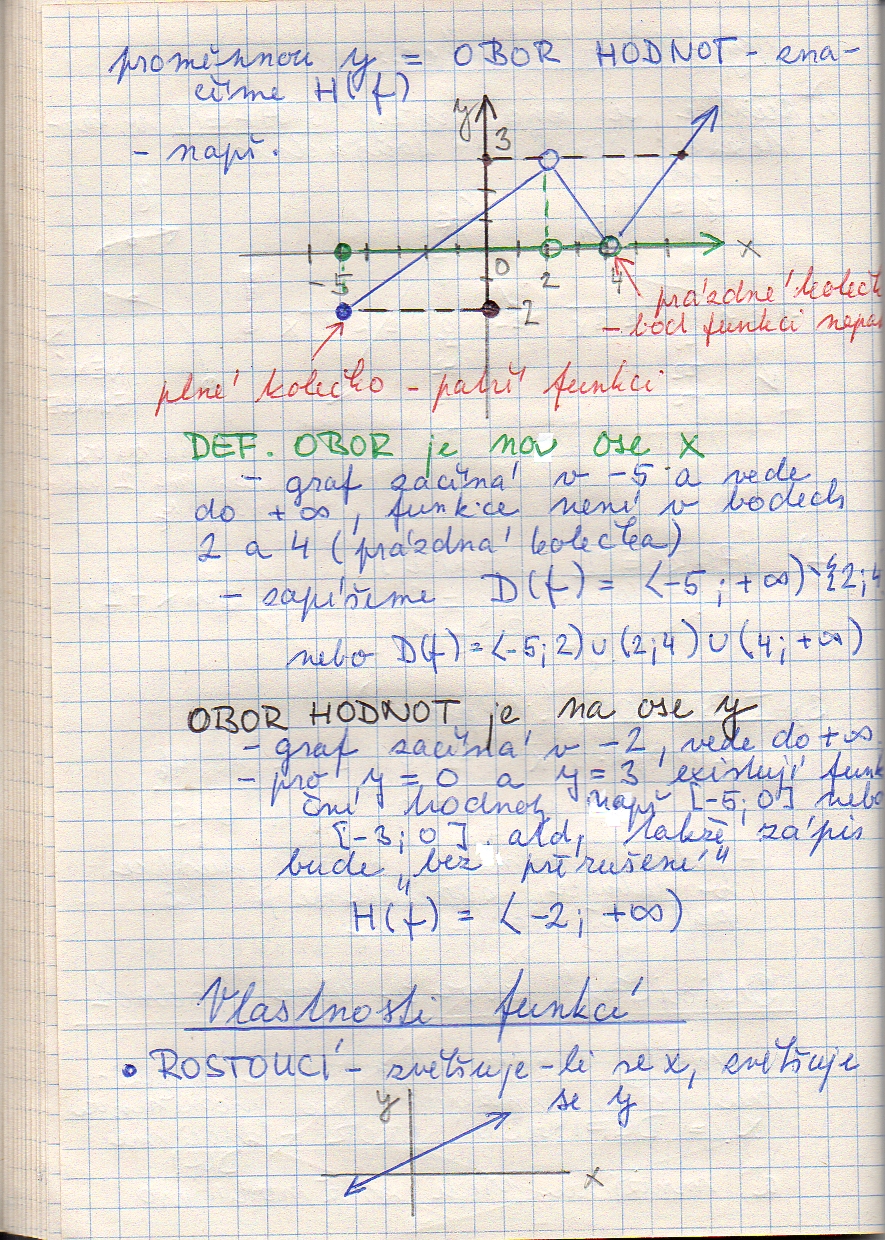 proměnnou y = OBOR HODNOT - zna-
číme H(f)
- např.
y
3
0
2
4
x
-5
-2
prázdné koleč
- bod funkci nepa
plné kolečko - patří funkci
DEF. OBOR je na ose x
- graf začíná v -5 a vede
do +∞, funkce není v bodech
2 a 4 (prázdná kolečka)
- zapíšeme D(f) = ⟨-5; +∞) \ {2;4
nebo D(f) = ⟨-5; 2) ∪ (2; 4) ∪ (4; +∞)
OBOR HODNOT je na ose y
- graf začíná v -2, vede do +∞
- pro y = 0 a y = 3 existují funk
ční hodnoty např [-5; 0] nebo
[-3; 0] atd, takže zápis
bude „bez přerušení"
H(f) = ⟨-2; +∞)
Vlastnosti funkcí
• ROSTOUCÍ - zvětšuje-li se x, zvětšuje
se y
y
x